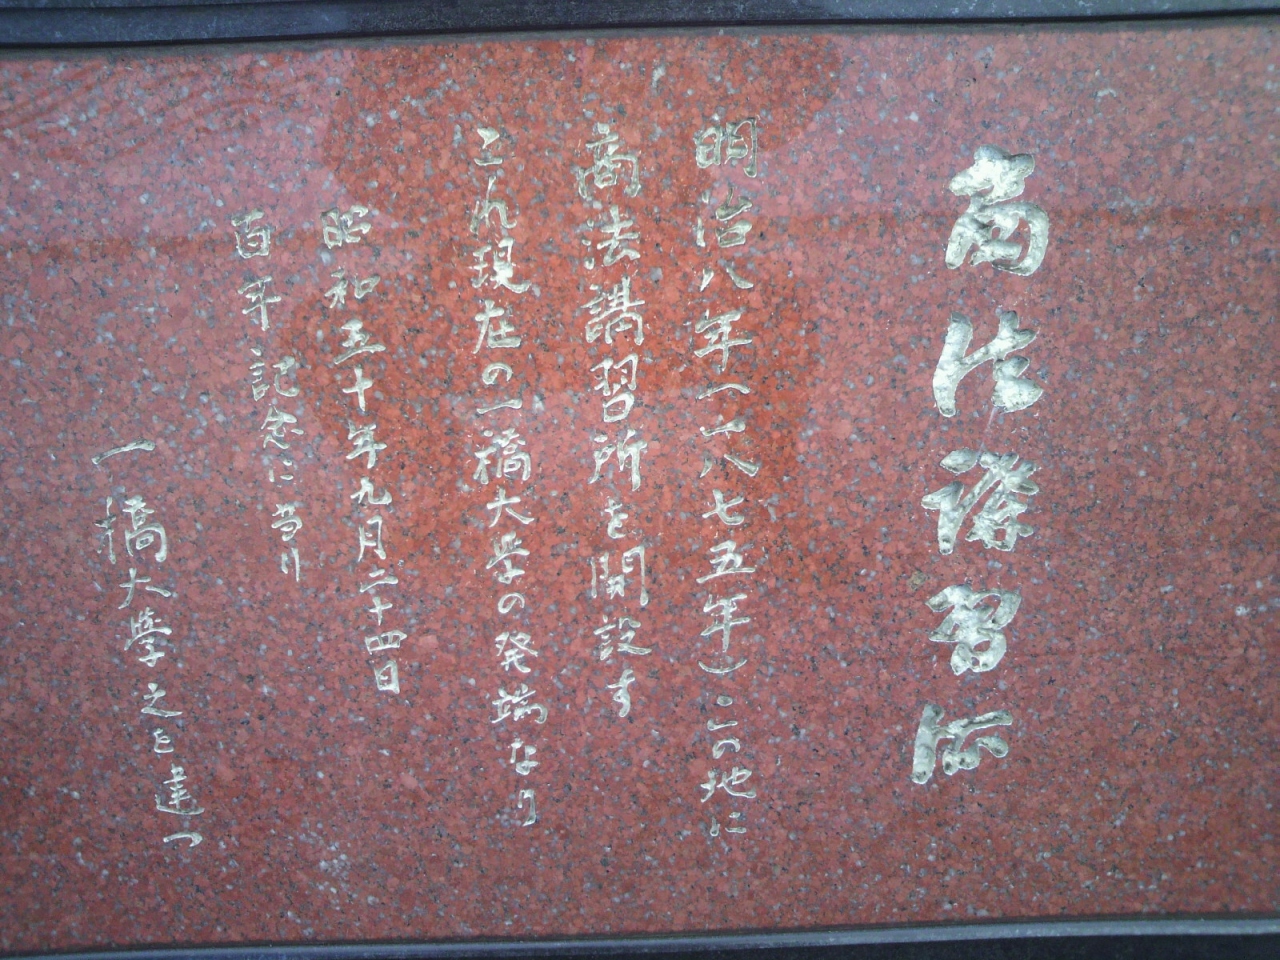 商法講習所
明治八年（一八七五年）この地に
商法講習所を開設す
これ現在の一橋大学の発端なり
昭和五十年九月二十四日
百年記念に当り
一橋大學之を建つ